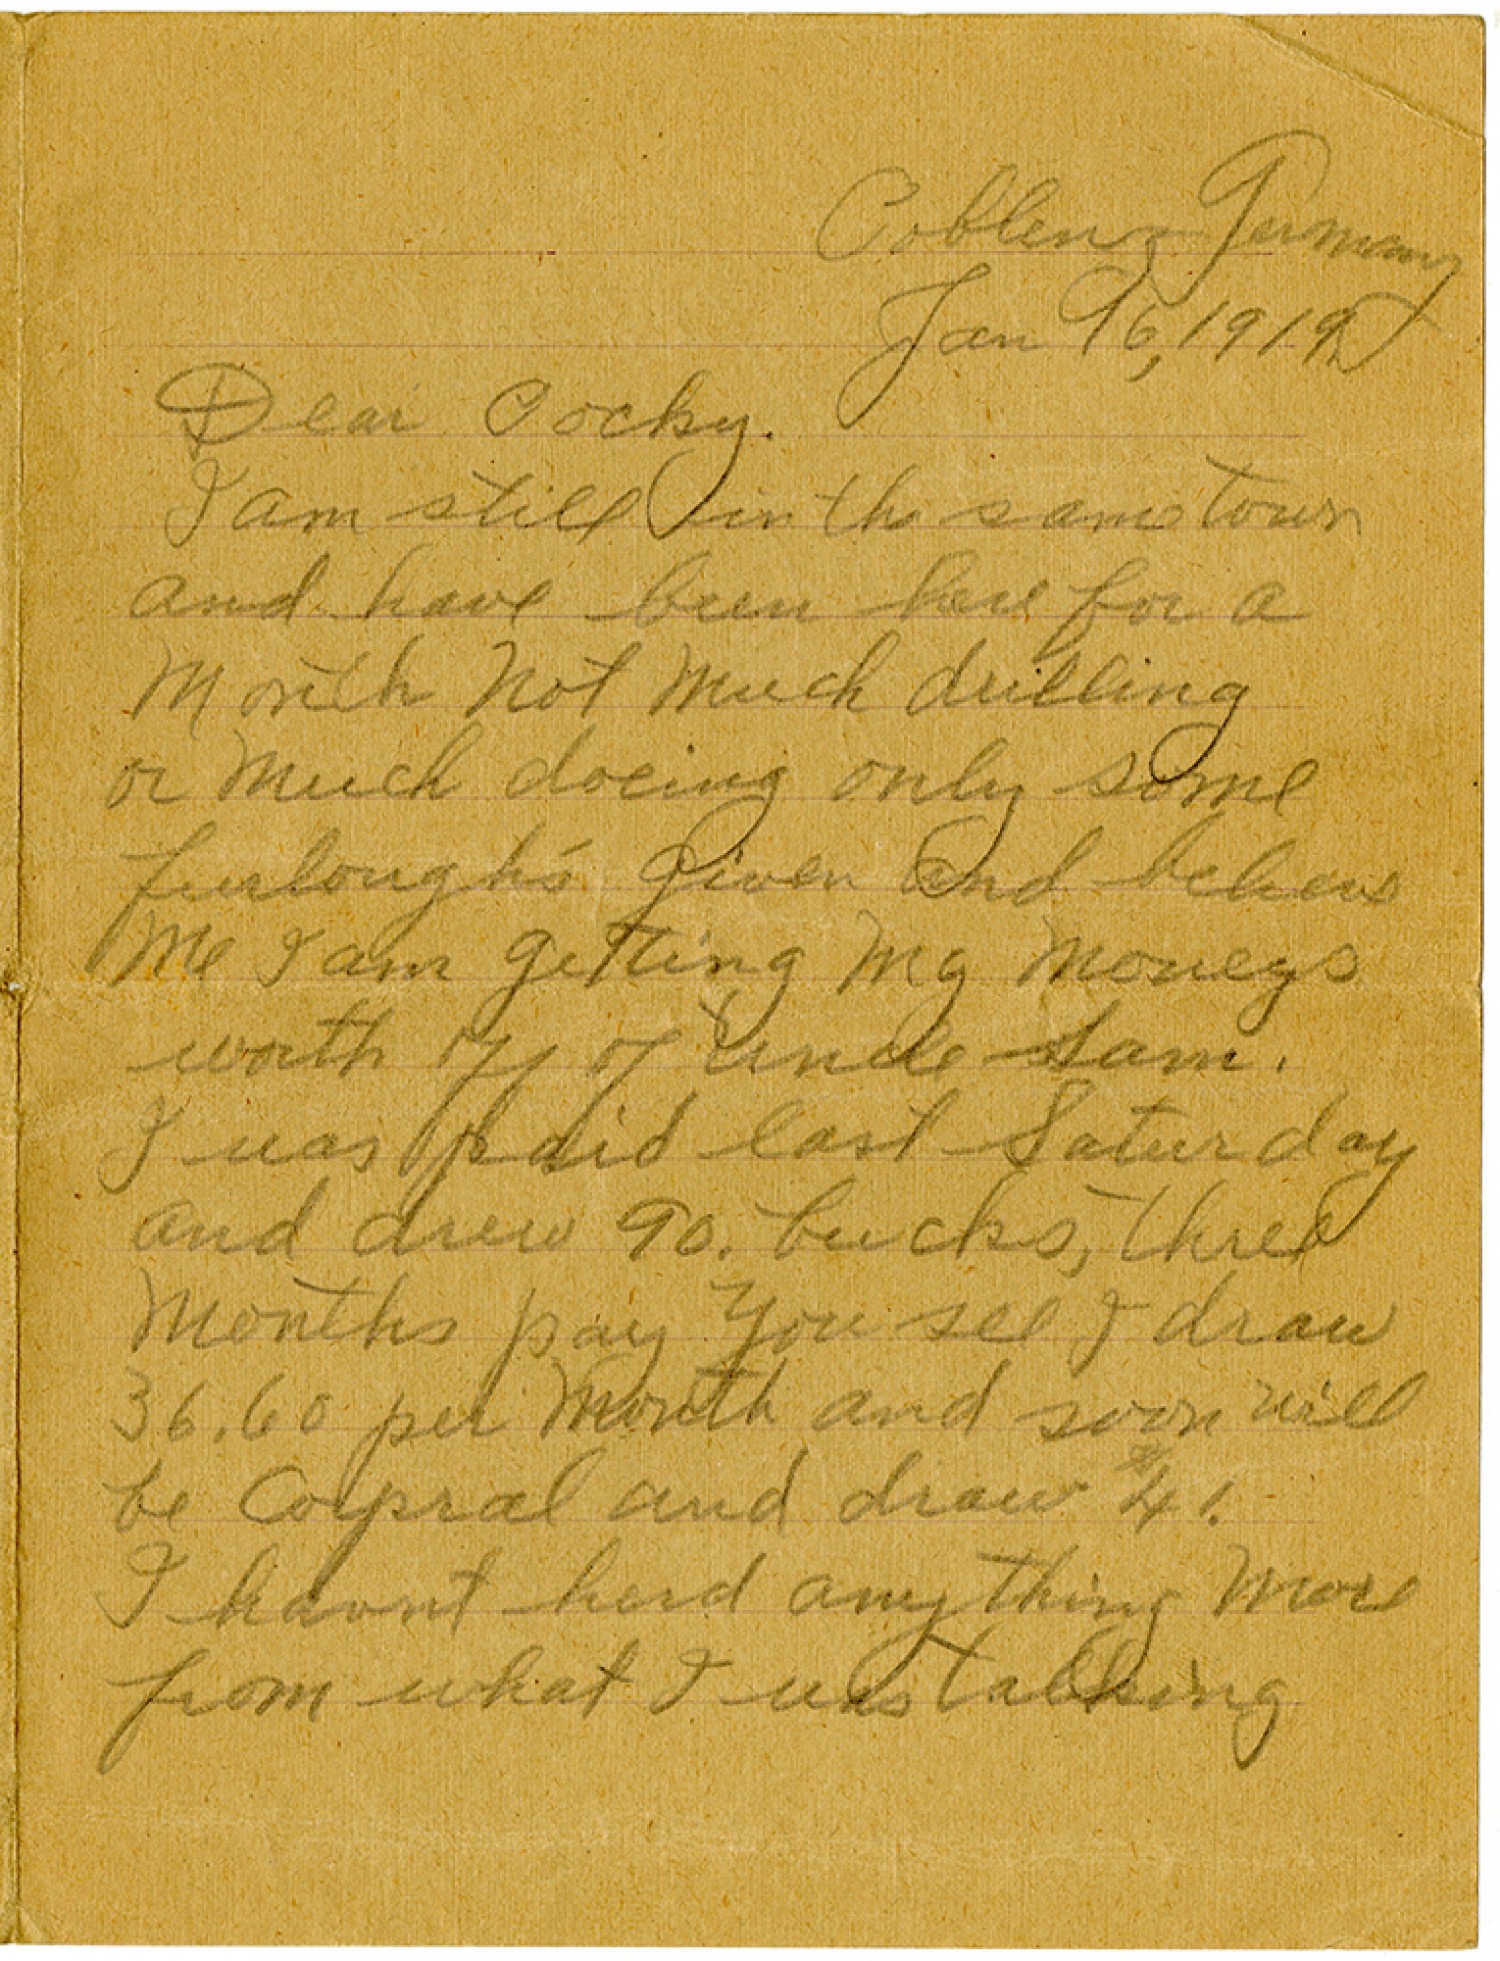 Coblenz Germany
Jan 16, 1919
Dear Cocky.
I am still in the same town
and have been here for a
Month Not Much drilling
or Much doeing only some
furlough's given and believe
Me I am getting My Moneys
worth off of Uncle Sam.
I was paid last Saturday
and drew 90. bucks, three
Months pay You see I draw
36.60 per Month and soon will
be Corpral and draw $41.
I havnt herd any thing More
from what I was talking